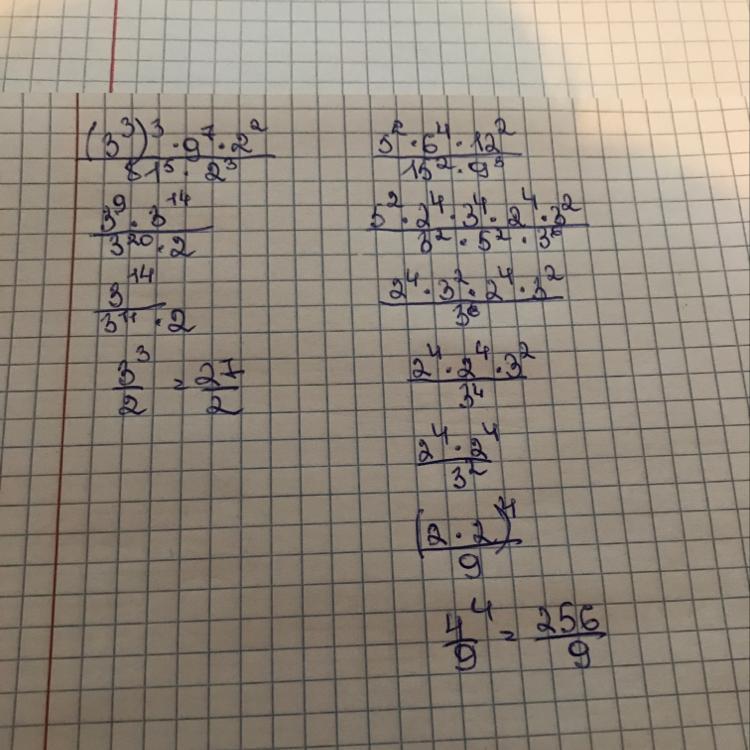 (3³)³ · 9⁷ · 2²
81⁵ · 2³
3⁹ · 3¹⁴
3²⁰ · 2
3¹⁴
3¹¹ · 2
3³ = 27
2 2
5² · 6⁴ · 12²
15² · 9³
5² · 2⁴ · 3⁴ · 2⁴ · 3²
3² · 5² · 3⁶
2⁴ · 3² · 2⁴ · 3²
3⁶
2⁴ · 2⁴ · 3²
3⁴
2⁴ · 2⁴
3²
(2 · 2)⁴
9
4⁴ = 256
9 9